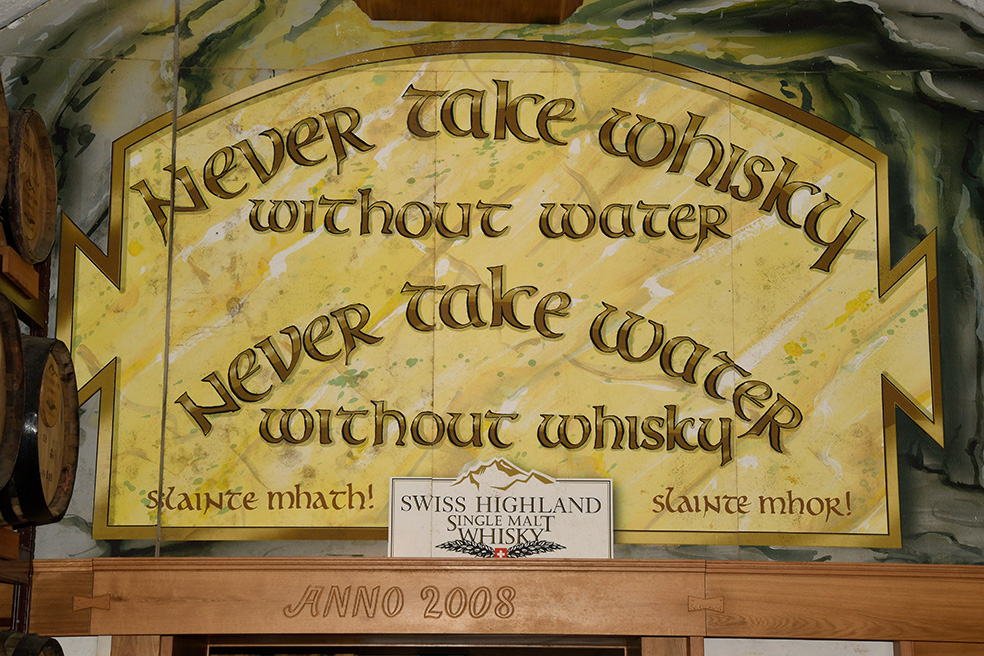 Never take whisky
without water
Never take water
without whisky
slainte mhath!
slainte mhor!
SWISS HIGHLAND
SINGLE MALT
WHISKY
ANNO 2008